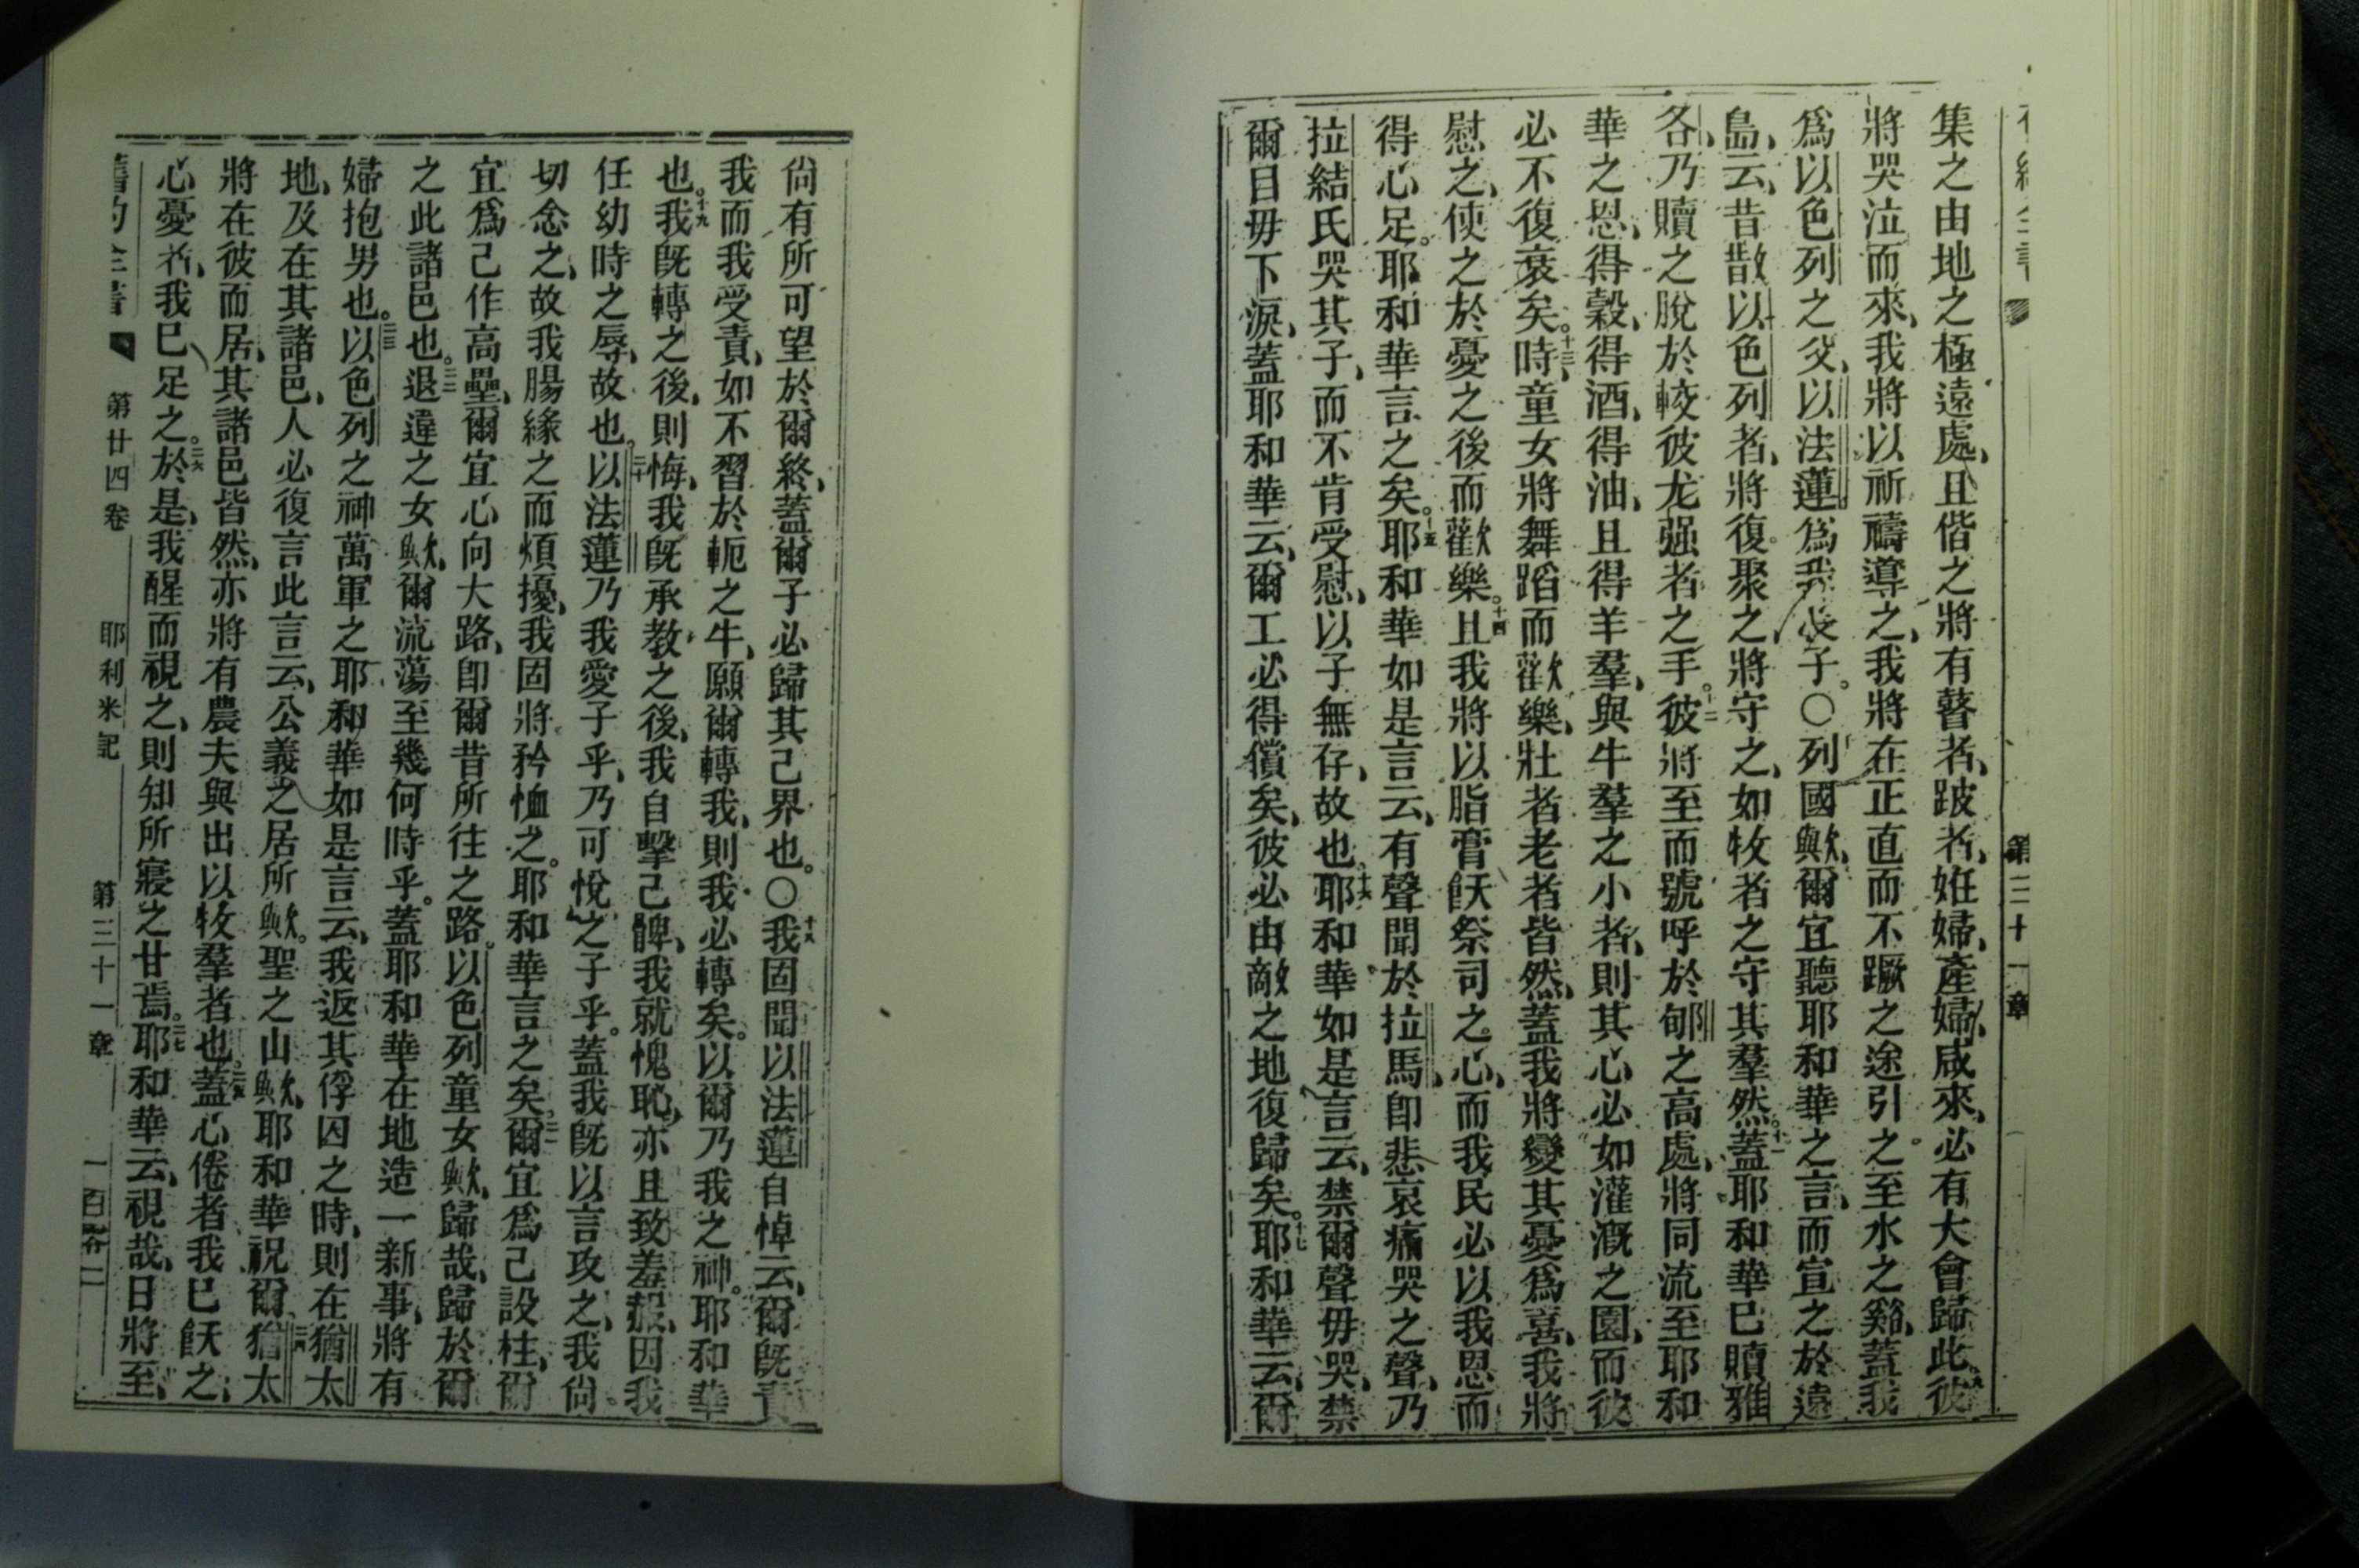 第三十一章
集之由地之極遠處、且偕之將有瞽者、跛者、姙婦、產婦、咸來、必有大會歸此、彼
將哭泣而來、我將以祈禱導之、我將在正直而不蹶之途引之。至水之谿、蓋我
爲以色列之父、以法蓮爲我長子。○列國歟、爾宜聽耶和華之言、而宣之於遠
島、云、昔散以色列者、將復聚之、將守之、如牧者之守其羣然。十一蓋耶和華已贖雅
各、乃贖之脫於較彼尨强者之手。十二彼將至而號呼於郇之高處、將同流至耶和
華之恩、得穀、得酒、得油、且得羊羣、與牛羣之小者、則其心必如灌溉之園、而彼
必不復衰矣。十三時、童女將舞蹈而歡樂、壯者老者皆然、蓋我將變其憂爲喜、我將
慰之、使之於憂之後而歡樂。十四且我將以脂膏飫祭司之心、而我民必以我恩而
得心足。耶和華言之矣。十五耶和華如是言云、有聲聞於拉馬、卽悲哀痛哭之聲、乃
拉結氏哭其子、而不肯受慰、以子無存、故也。十六耶和華如是言云、禁爾聲毋哭、禁
爾目毋下淚、蓋耶和華云、爾工必得償矣、彼必由敵之地復歸矣。十七耶和華云、爾
尙有所可望於爾終、蓋爾子必歸其己界也。○十八我固聞以法蓮自悼云、爾旣責
我而我受責、如不習於軛之牛、願爾轉我、則我必轉矣。以爾乃我之神。耶和華
也。十九我旣轉之後、則悔、我旣承教之後、我自擊己髀、我就愧恥、亦且致羞赧、因我
任幼時之辱、故也。二十以法蓮乃我愛子乎、乃可悅之子乎。蓋我旣以言攻之、我尙
切念之、故我腸緣之而煩擾、我固將矜恤之。耶和華言之矣。二一爾宜爲己設柱、爾
宜爲己作高壘、爾宜心向大路、卽爾昔所往之路。以色列童女歟、歸哉、歸於爾
之此諸邑也。二二退違之女歟、爾流蕩至幾何時乎。蓋耶和華在地造一新事、將有
婦抱男也。二三以色列之神萬軍之耶和華如是言云、我返其俘囚之時、則在猶太
地、及在其諸邑、人必復言此言云、公義之居所歟。聖之山歟、耶和華祝爾。二四猶太
將在彼而居、其諸邑皆然、亦將有農夫與出以牧羣者也。二五蓋心倦者我已飫之、
心憂者、我已足之。二六於是、我醒而視之、則知所寢之甘焉。二七耶和華云、視哉、日將至、
舊約全書 第廿四卷 耶利米記 第三十一章